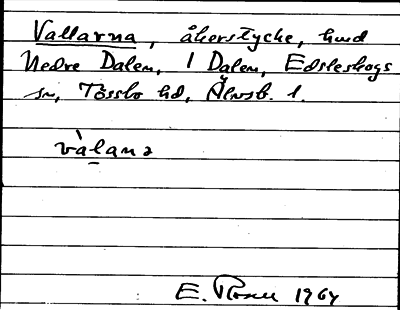 Vallarna, åkerstycke, hmd
Nedre Dalen, 1 Dalen, Edsleskogs
sn, Tössbo hd, Älvsb. l.
vàlana
E. Rosén 1964